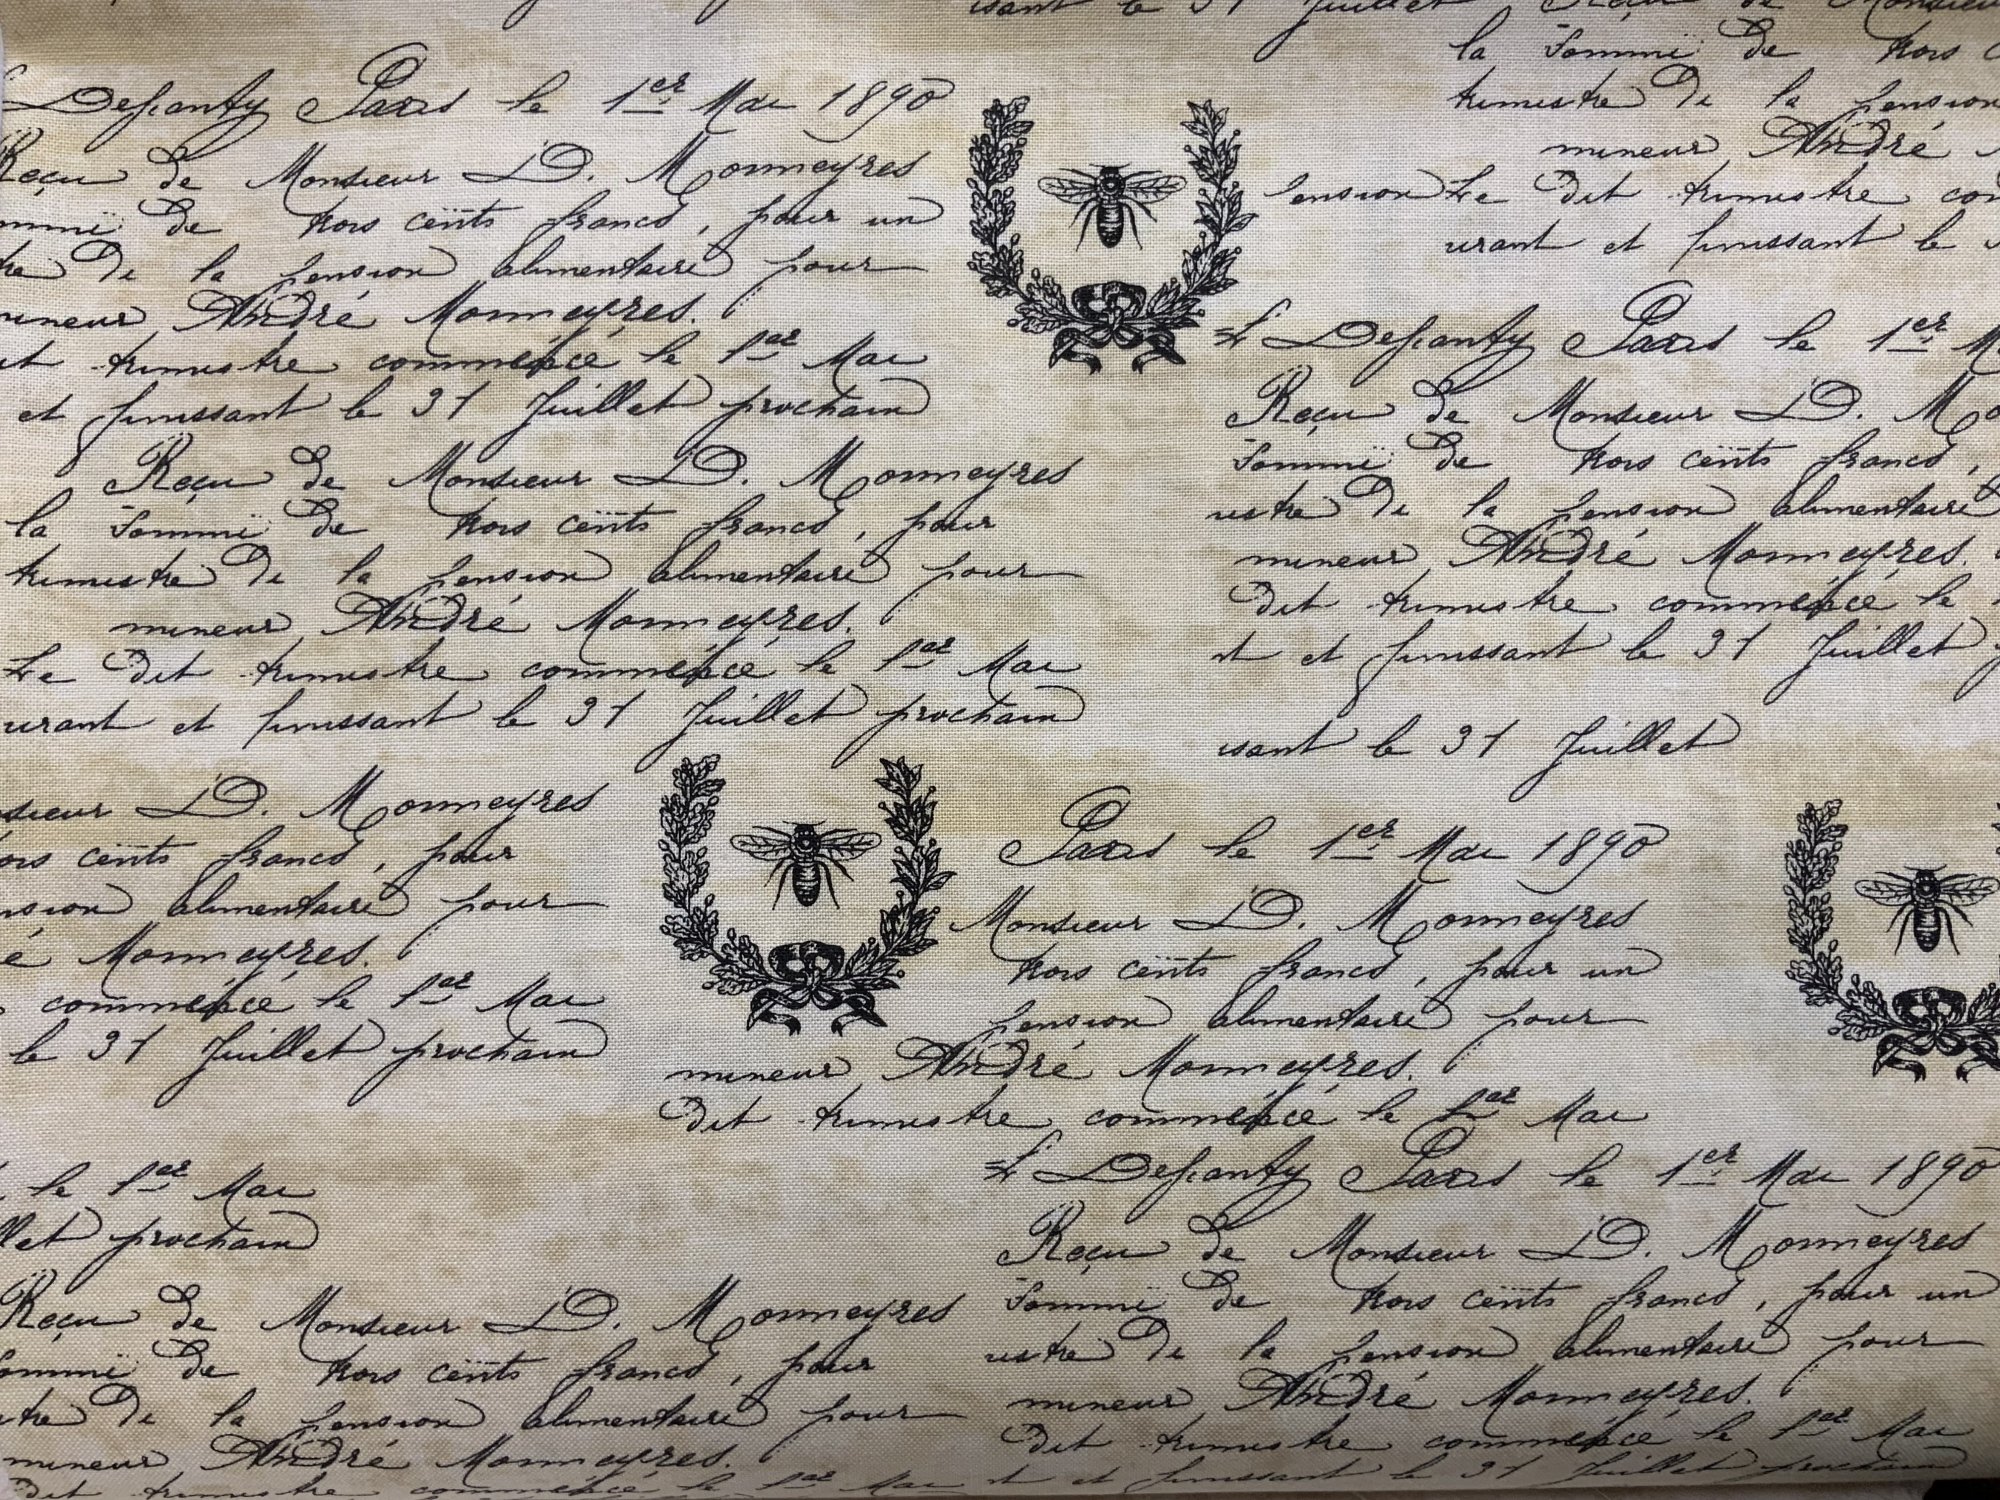 sant le 31 Juillet
Reçu de Monsieur
la Sommë de trois
trimestre de la pension
mineur André
pension Le dit trimestre
urant et finissant le
Defianty Paris le 1er Mai 1890
Reçu de Monsieur D. Monmeyres
de trois cents francs, pour un
de la pension alimentaire pour
mineur André Monmeyres.
trimestre commencé le 1er Mai
et finissant le 31 Juillet prochain
Reçu de Monsieur D. Monmeyres
la Sommë de trois cents francs, pour
trimestre de la pension alimentaire pour
mineur André Monmeyres.
Le dit trimestre commencé le 1er Mai
urant et finissant le 31 Juillet prochain
Defianty Paris le 1er
Reçu de Monsieur D.
Sommë de trois cents francs,
stre de la pension alimentaire
mineur André Monmeyres.
dit trimestre commencé le
et finissant le 31 Juillet
sant le 31 Juillet
sieur D. Monmeyres
cents francs, pour
alimentaire pour
Monmeyres.
commencé le 1er Mai
le 31 Juillet prochain
Paris le 1er Mai 1890
Monsieur D. Monmeyres
trois cents francs, pour un
pension alimentaire pour
mineur André Monmeyres.
dit trimestre commencé le 1er Mai
le 1er Mai
prochain
Reçu de Monsieur D. Monmeyres
de trois cents francs, pour
de la pension alimentaire pour
mineur André Monmeyres.
dit trimestre commencé le 1er Mai
Defianty Paris le 1er Mai 1890
Reçu de Monsieur D. Monmeyres
Sommë de trois cents francs, pour un
stre de la pension alimentaire pour
mineur André Monmeyres.
dit trimestre commencé le 1er Mai
et finissant le 31 Juillet prochain